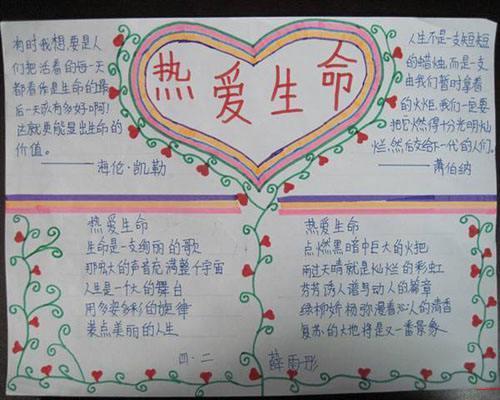 热爱生命
有时我想,要是人
们把活着的每一天
都看作是生命的最
后一天该有多好啊!
这就更能显出生命的
价值。
——海伦·凯勒
人生不是一支短短
的蜡烛,而是一支
由我们暂时拿着
的火炬,我们一定要
把它燃得十分光明灿
烂,然后交给下一代的人们。
——萧伯纳
热爱生命
生命是一支绚丽的歌
那宏大的声音充满整个宇宙
人生是一个大的舞台
用多姿多彩的旋律
装点美丽的人生
热爱生命
点燃黑暗中巨大的火把
雨过天晴就是灿烂的彩虹
芬芳诱人谱写动人的篇章
绿柳娇杨弥漫着沁人的清香
复苏的大地将是又一番景象
四·二
薛雨彤